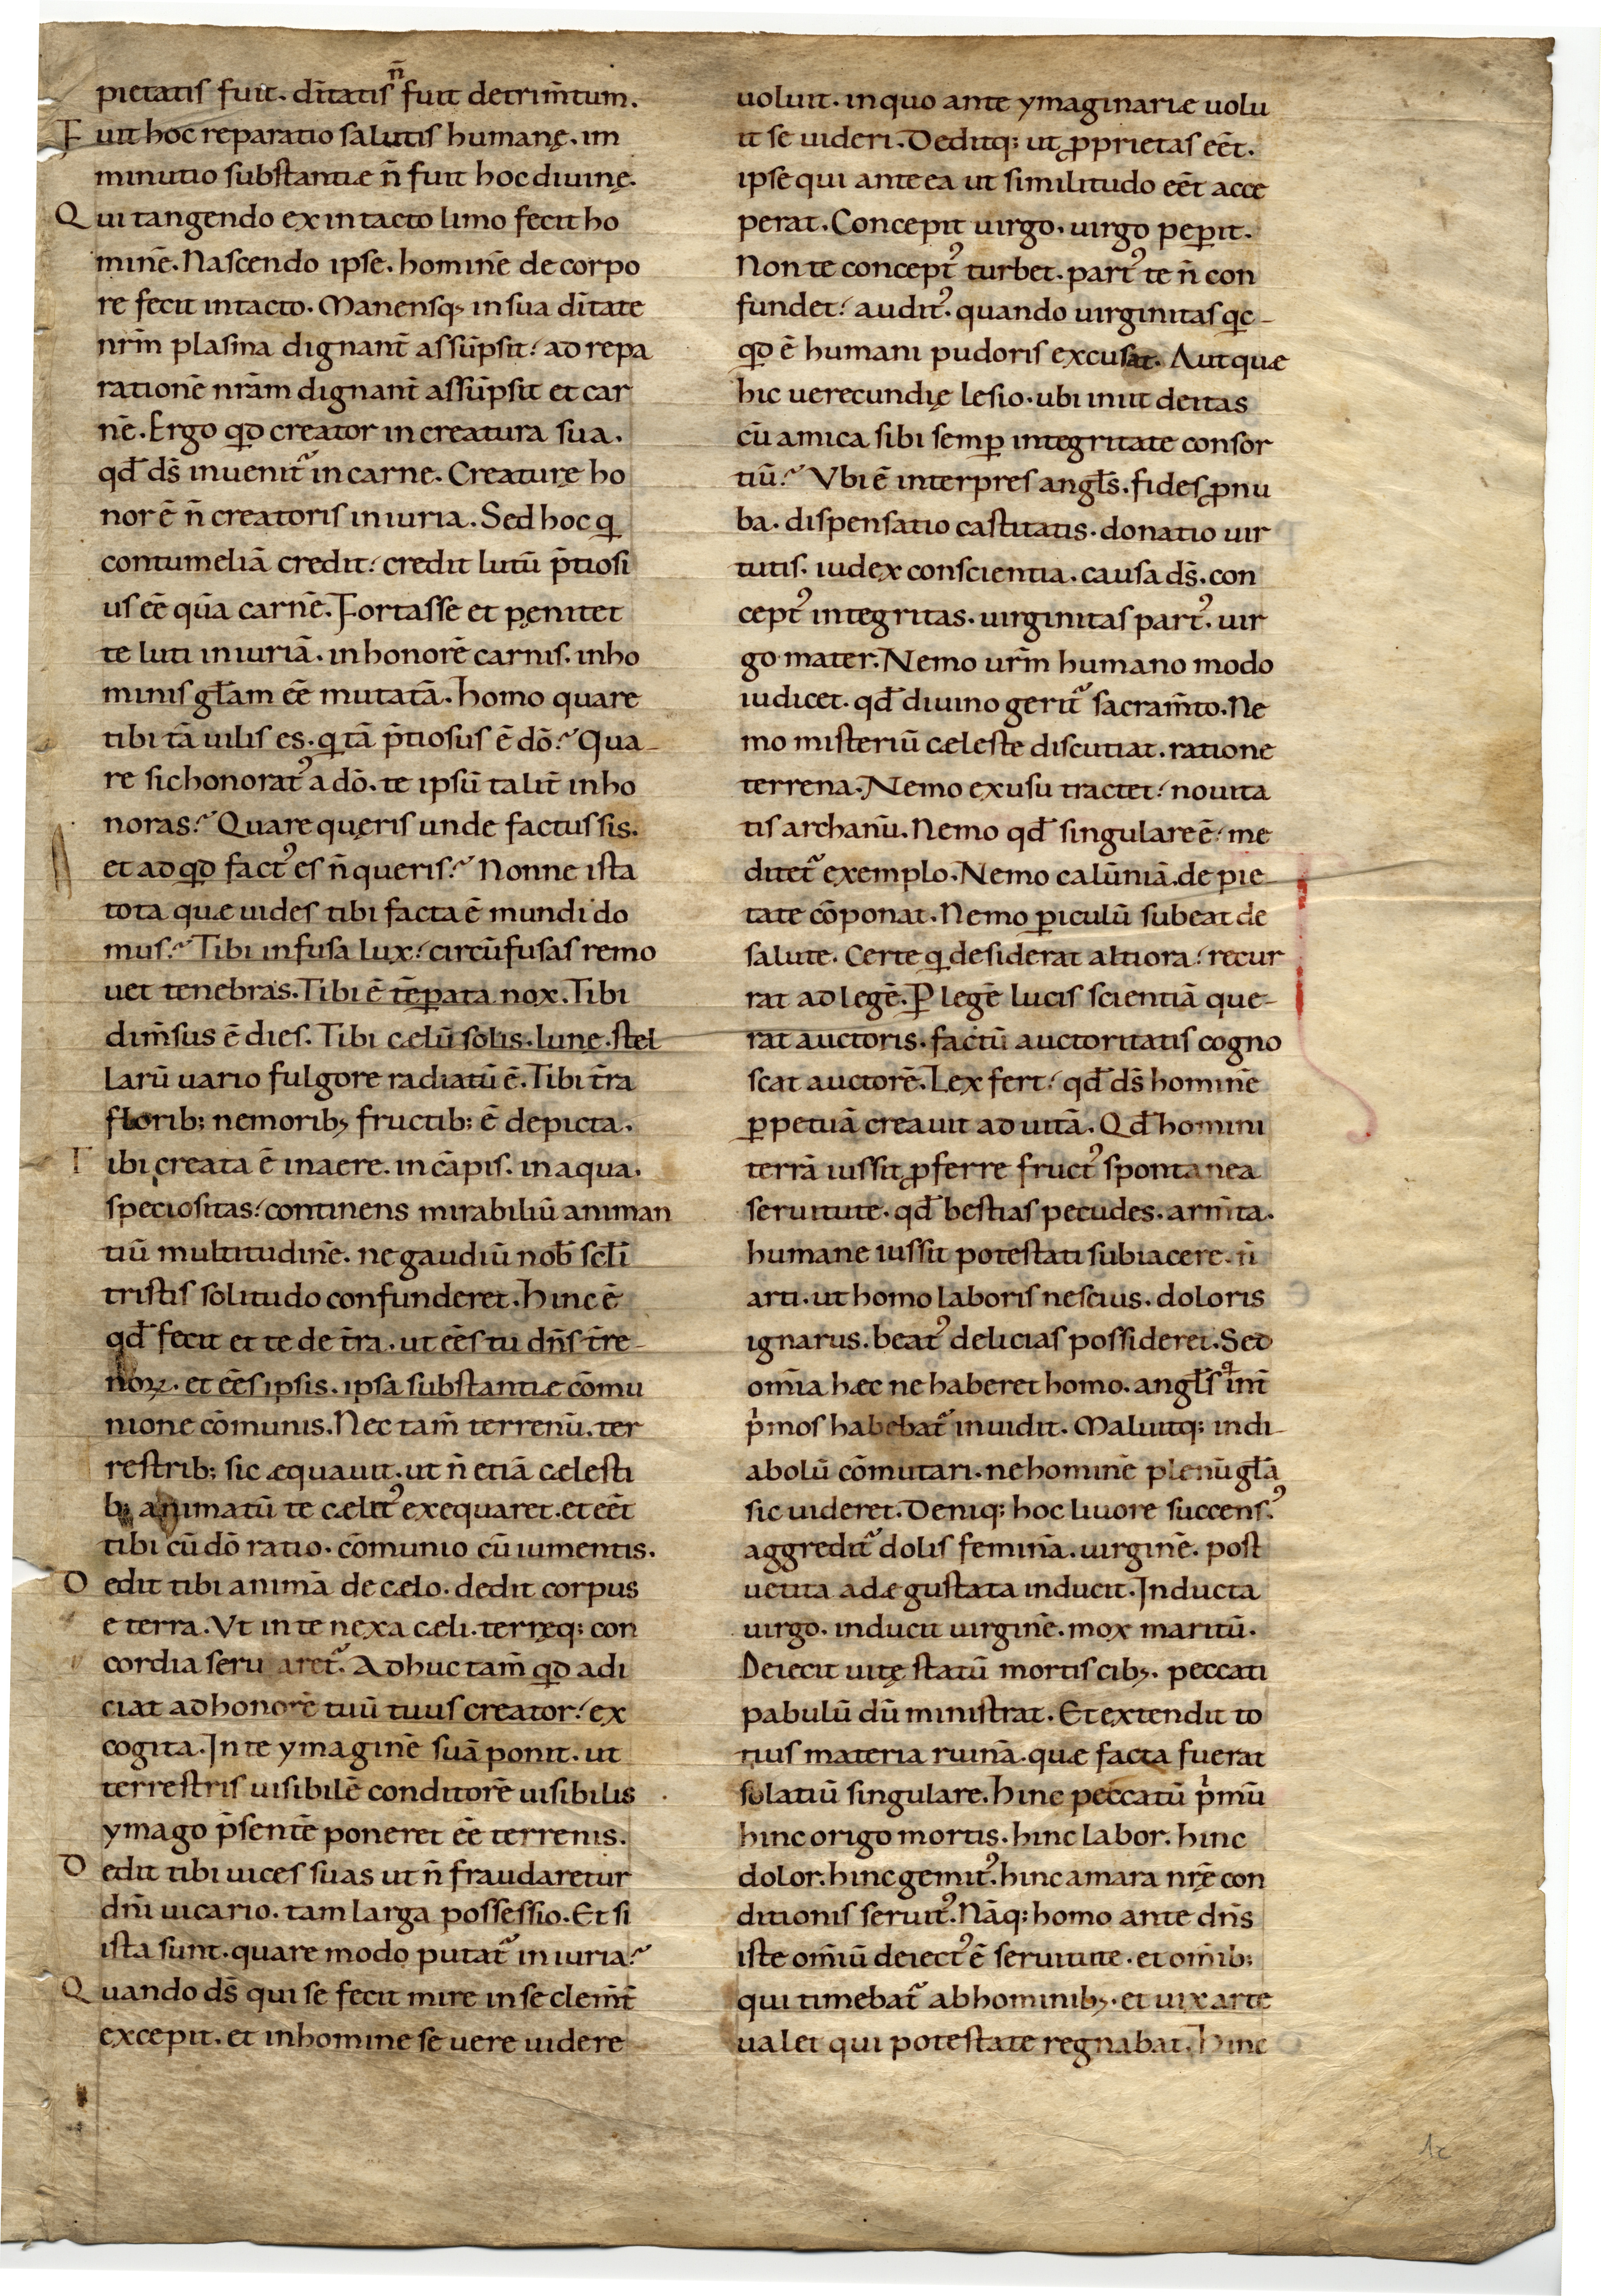 pietatis fuit. dītatis n̄ fuit detrim̄tum.
Fuit hoc reparatio salutis humanę. im
minutio substantiæ n̄ fuit hoc diuinę.
Qui tangendo ex intacto limo fecit ho
minē. Nascendo ipse. hominē de corpo
re fecit intacto. Manensq; in sua dītate
nrm̄ plasma dignant̄ assūpsit. ad repa
rationē nrām dignant̄ assūpsit et car
nē. Ergo qđ creator in creatura sua.
qđ ds̄ inuenit᷑ in carne. Creaturę ho
nor ē n̄ creatoris iniuria. Sed hoc q̄
contumeliā credit. credit lutū p̄tiosi
us eē qūa carnē. Fortasse et penitet
te luti iniuriā. in honorē carnis. in ho
minis głam eē mutatā. homo quare
tibi tā uilis es. q tā p̄tiosus ē dō. Qua-
re sic honorat᾽ a dō. te ipsū talit̄ inho
noras. Quare quęris unde factus sis.
et ad qđ fact᾽ es n̄ queris. Nonne ista
tota quæ uides tibi facta ē mundi do
mus. Tibi infusa lux. circūfusas remo
uet tenebras. Tibi ē tēꝑata nox. Tibi
dim̄sus ē dies. Tibi cælū solis. lunę. stel
larū uario fulgore radiatū ē. Tibi tr̄a
florib; nemorib; fructib; ē depicta.
Tibi creata ē in aere. in cāpis. in aqua.
speciositas. continens mirabiliū animan
tiū multitudinē. ne gaudiū nob̄ sc̄li
tristis solitudo confunderet. Hinc ē
qđ fecit et te de tr̄a. ut eēs tu dn̄s tr̄e-
noꝝ. et eēs ipsis. ipsa substantiæ cōmu
nione cōmunis. Nec tam̄ terrenū. ter
restrib; sic æquauit. ut n̄ etiā cælesti
b; animatū te cælit᾽ exequaret. et eēt
tibi cū dō ratio. cōmunio cū iumentis.
Dedit tibi animā de cælo. dedit corpus
e terra. Vt in te nexa cæli. terręq; con
cordia seruaret᷑. Adhuc tam̄ qđ adi
ciat ad honorē tuū tuus creator. ex
cogita. In te ymaginē suā ponit. ut
terrestris uisibilē conditorē uisibilis
ymago p̄sentē poneret eē terrenis.
Dedit tibi uices suas ut n̄ fraudaretur
dn̄i uicario. tam larga possessio. Et si
ista sunt. quare modo putat᷑ iniuria.
Quando ds̄ qui se fecit mire in se clem̄t̄
excepit. et in homine se uere uidere
uoluit. in quo ante ymaginariæ uolu
it se uideri. Deditq; ut ꝓprietas eēt.
ipse qui antea ut similitudo eēt acce
perat. Concepit uirgo. uirgo peꝑit.
Non te concept᾽ turbet. part᾽ te n̄ con
fundet. audit᾽. quando uirginitas qc-
qđ ē humani pudoris excusat. Aut quæ
hic uerecundię lesio. ubi iniit deitas
cū amica sibi semꝑ integritate consor
tiū. Vbi ē interpres angls̄. fides ꝓnu
ba. dispensatio castitatis. donatio uir
tutis. iudex conscientia. causa ds̄. con
cept᾽ integritas. uirginitas part᾽. uir
go mater. Nemo urm̄ humano modo
iudicet. qđ diuino gerit᷑ sacram̄to. Ne
mo misteriū cæleste discutiat. ratione
terrena. Nemo ex usu tractet. nouita
tis archanū. Nemo qđ singulare ē. me
ditet᷑ exemplo. Nemo calūniā. de pie
tate cōponat. Nemo ꝑiculū subeat de
salute. Certe q desiderat altiora. recur
rat ad legē. Ꝑ legē lucis scientiā que-
rat auctoris. factū auctoritatis cogno
scat auctorē. Lex fert. qđ ds̄ hominē
ꝑpetuā creauit ad uitā. Qđ homini
terrā iussit ꝓferre fruct᾽ spontanea
seruitute. qđ bestias pecudes. arm̄ta.
humane iussit potestati subiacere. n̄
arti. ut homo laboris nescius. doloris
ignarus. beat᾽ delicias possideret. Sed
om̄ia hæc ne haberet homo. angls̄ q int̄
p̄mos habebat᷑ inuidit. Maluitq; in di-
abolū cōmutari. ne hominē plenū głā
sic uideret. Deniq; hoc liuore succens᾽.
aggredit᷑ dolis feminā. uirginē. post
uetita adæ gustata inducit. Inducta
uirgo. inducit uirginē. mox maritū.
Deiecit uitę statū mortis cib;. peccati
pabulū dū ministrat. Et extendit to
tius materia ruinā. quæ facta fuerat
solatiū singulare. hinc peccatū p̄mū
hinc origo mortis. hinc labor. hinc
dolor. hinc gemit᾽. hinc amara nrę̄ con
ditionis seruit᾽. Nāq; homo ante dn̄s
iste om̄iū deiect᾽ ē seruitute. et om̄ib;
qui timebat᷑ ab hominib;. et uix arte
ualet qui potestate regnabat. Hinc